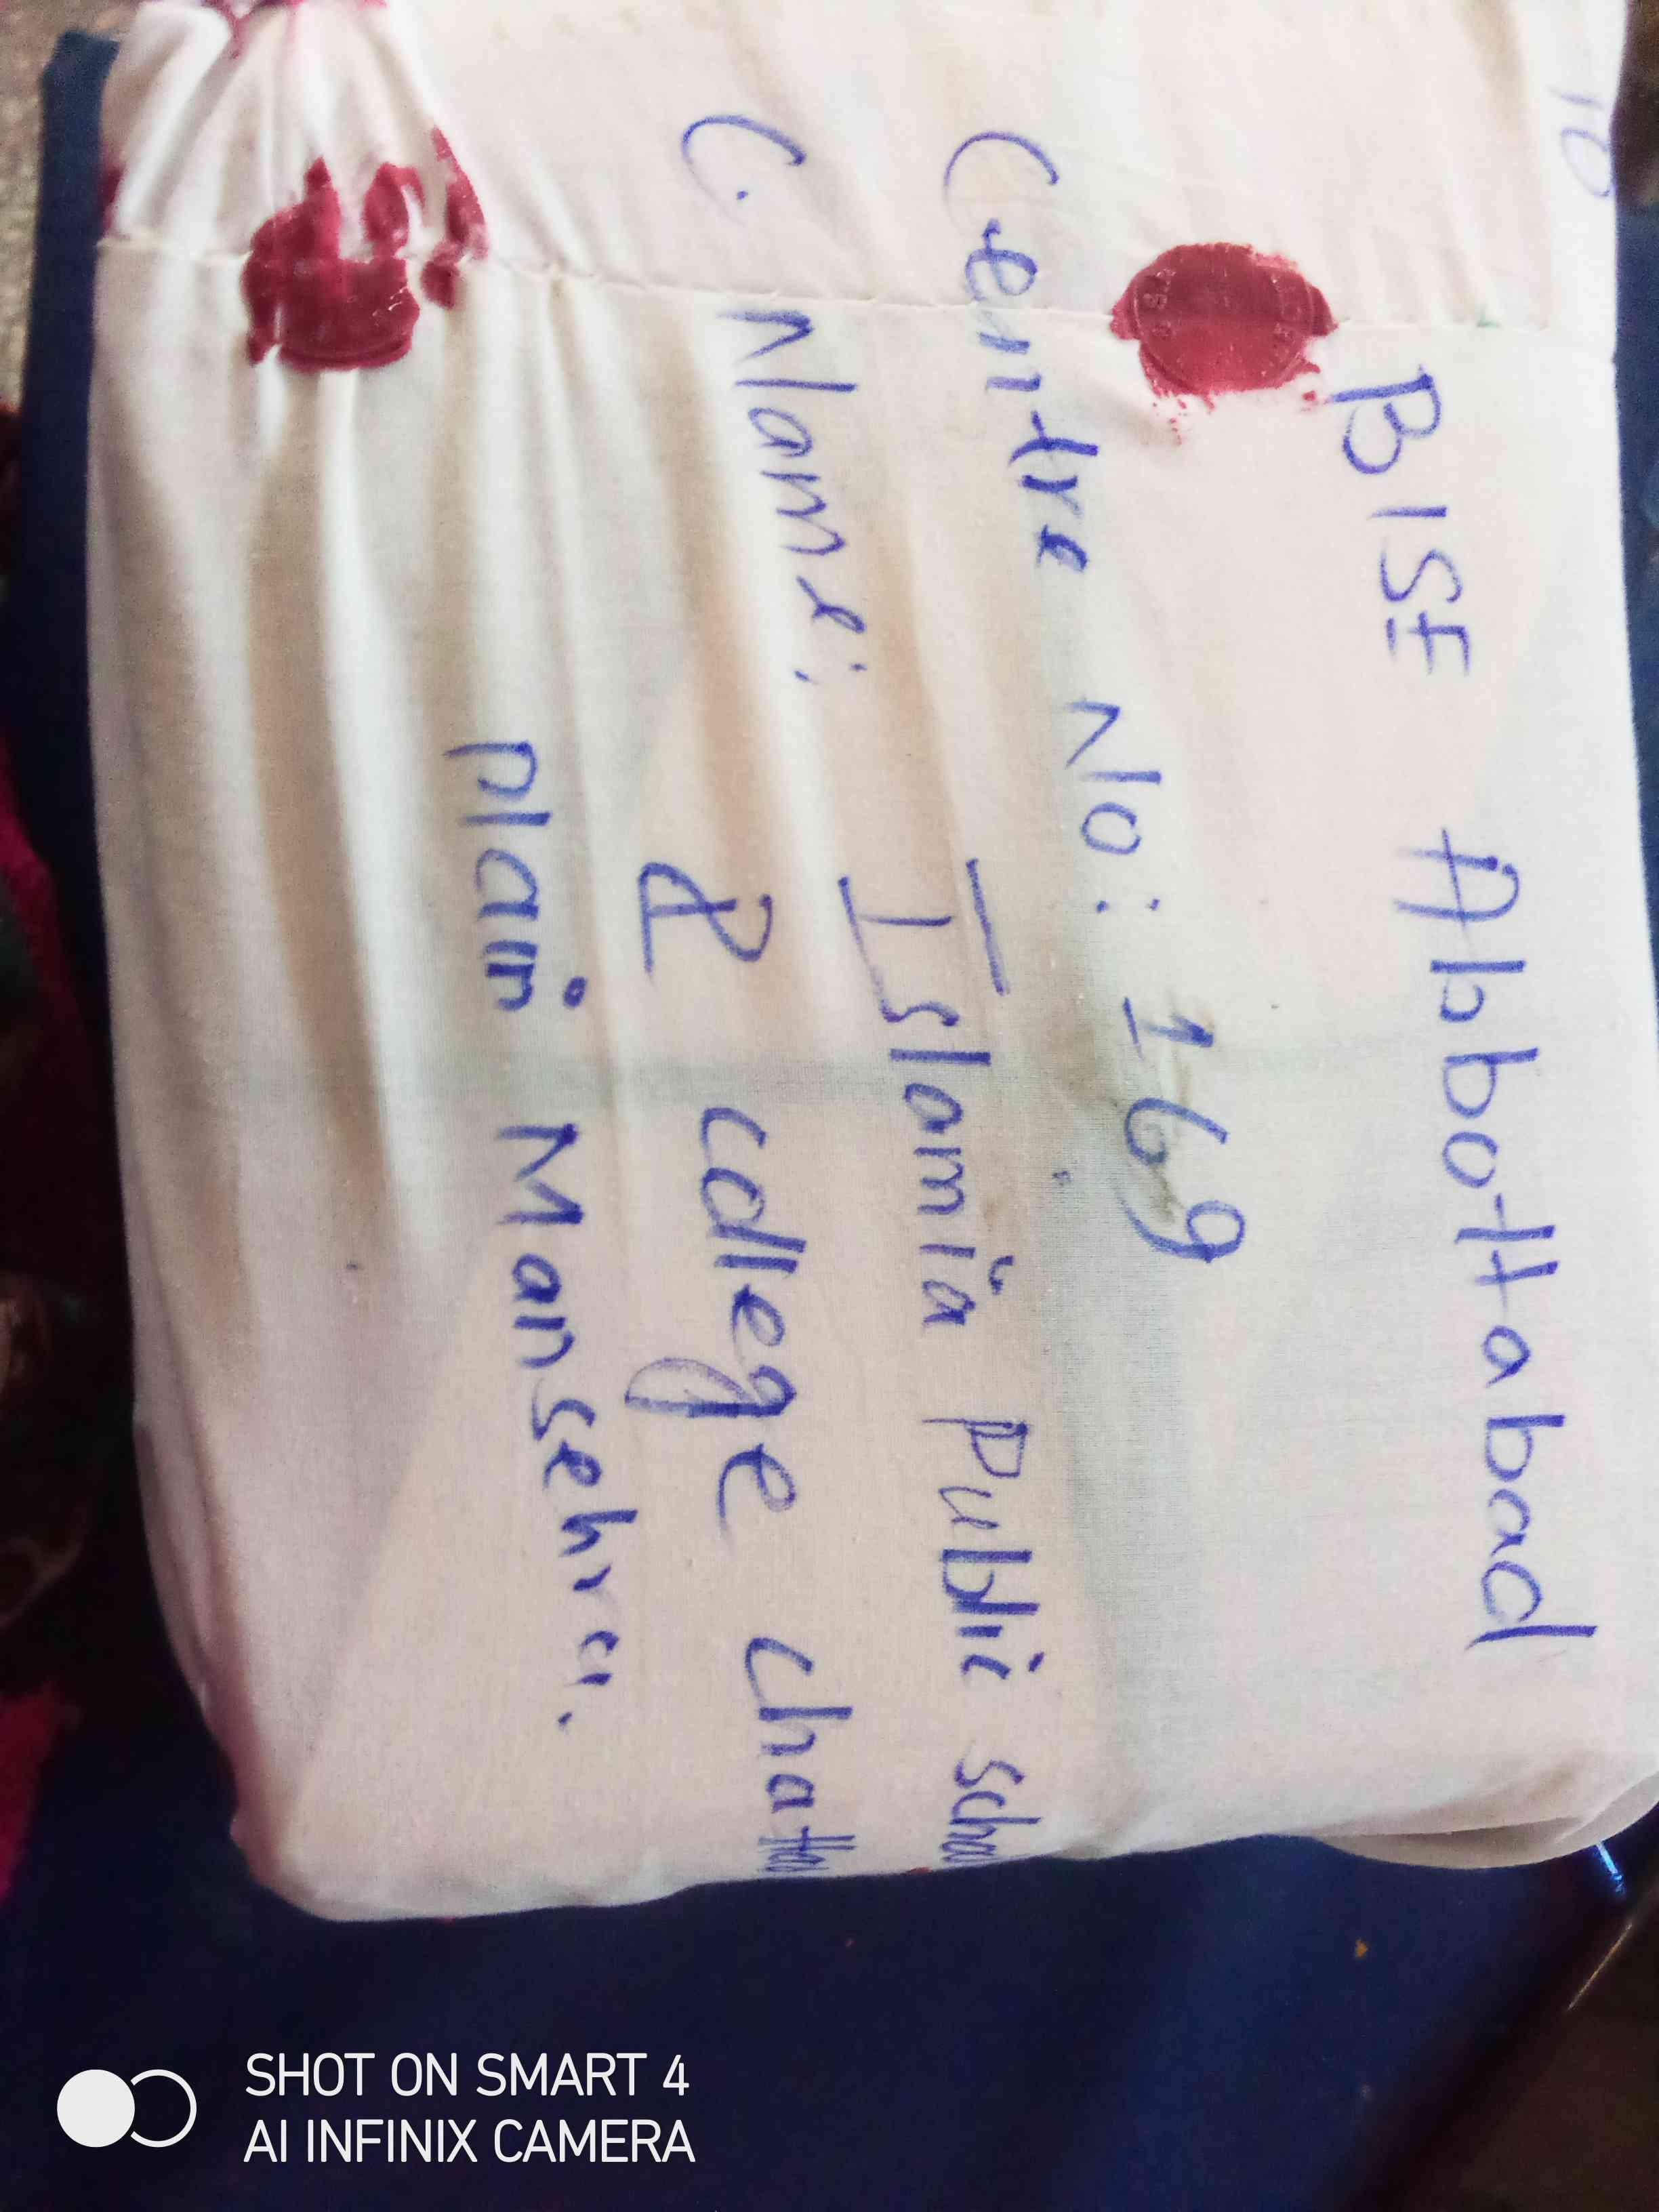 To
BISE Abbottabad
Centre No: 169
C. Name: Islamia Public
& college
plain Mansehra.
SHOT ON SMART 4
AI INFINIX CAMERA